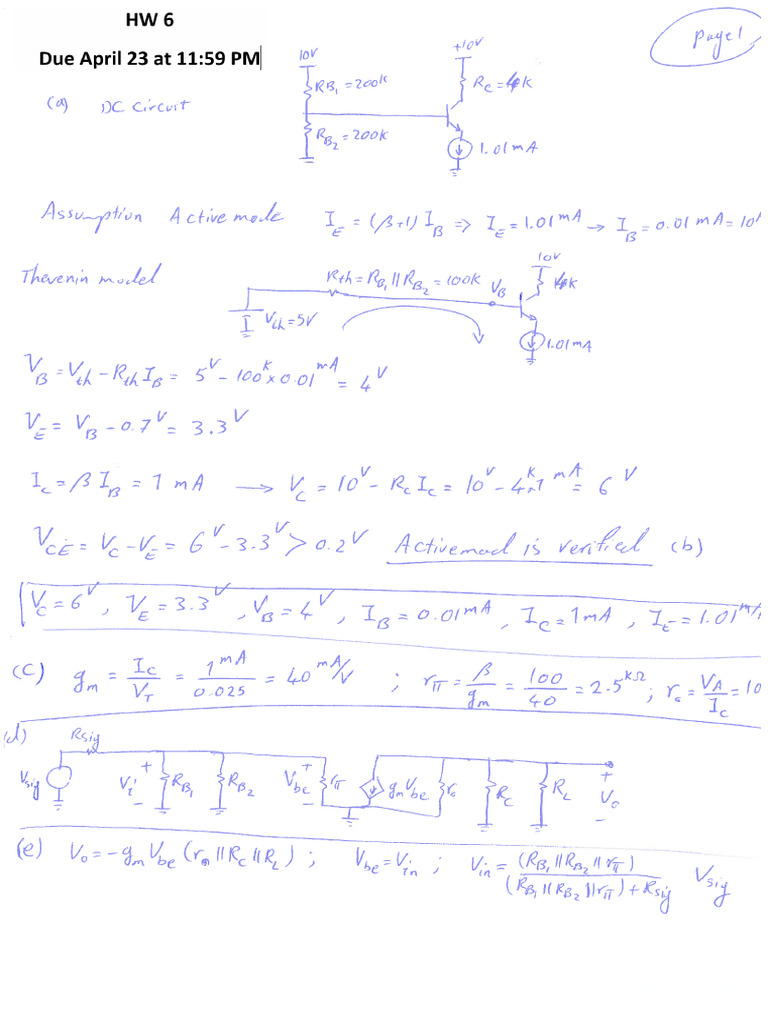 HW 6
Due April 23 at 11:59 PM
Page 1
(a) DC Circuit
10V
+10V
RB₁ = 200K
Rc = 4K
RB₂ = 200K
1.01 mA
Assumption Active mode I_E = (β+1) I_B => I_E = 1.01 mA → I_B = 0.01 mA = 10
Thevenin model
Rth = RB₁ || RB₂ = 100K
V_B
10V
4K
Vth = 5V
1.01 mA
V_B = Vth - Rth I_B = 5V - 100K × 0.01 mA = 4V
V_E = V_B - 0.7V = 3.3V
I_C = β I_B = 1 mA → V_C = 10V - R_C I_C = 10V - 4K × 1 mA = 6V
V_CE = V_C - V_E = 6V - 3.3V > 0.2V Active mod is verified (b)
V_C = 6V, V_E = 3.3V, V_B = 4V, I_B = 0.01 mA, I_C = 1 mA, I_E = 1.01 m
(C) g_m = I_C / V_T = 1 mA / 0.025 = 40 mA/V ; r_π = β / g_m = 100 / 40 = 2.5 kΩ ; r_o = V_A / I_C = 10
(d) Rsig
Vsig
+ Vi -
RB₁
RB₂
+ Vbe -
r_π
g_m Vbe
r_o
R_C
R_L
+ Vo -
(e) Vo = -g_m Vbe (r_o || R_C || R_L) ; Vbe = Vin ; Vin = (RB₁ || RB₂ || r_π) / ((RB₁ || RB₂ || r_π) + Rsig) Vsig